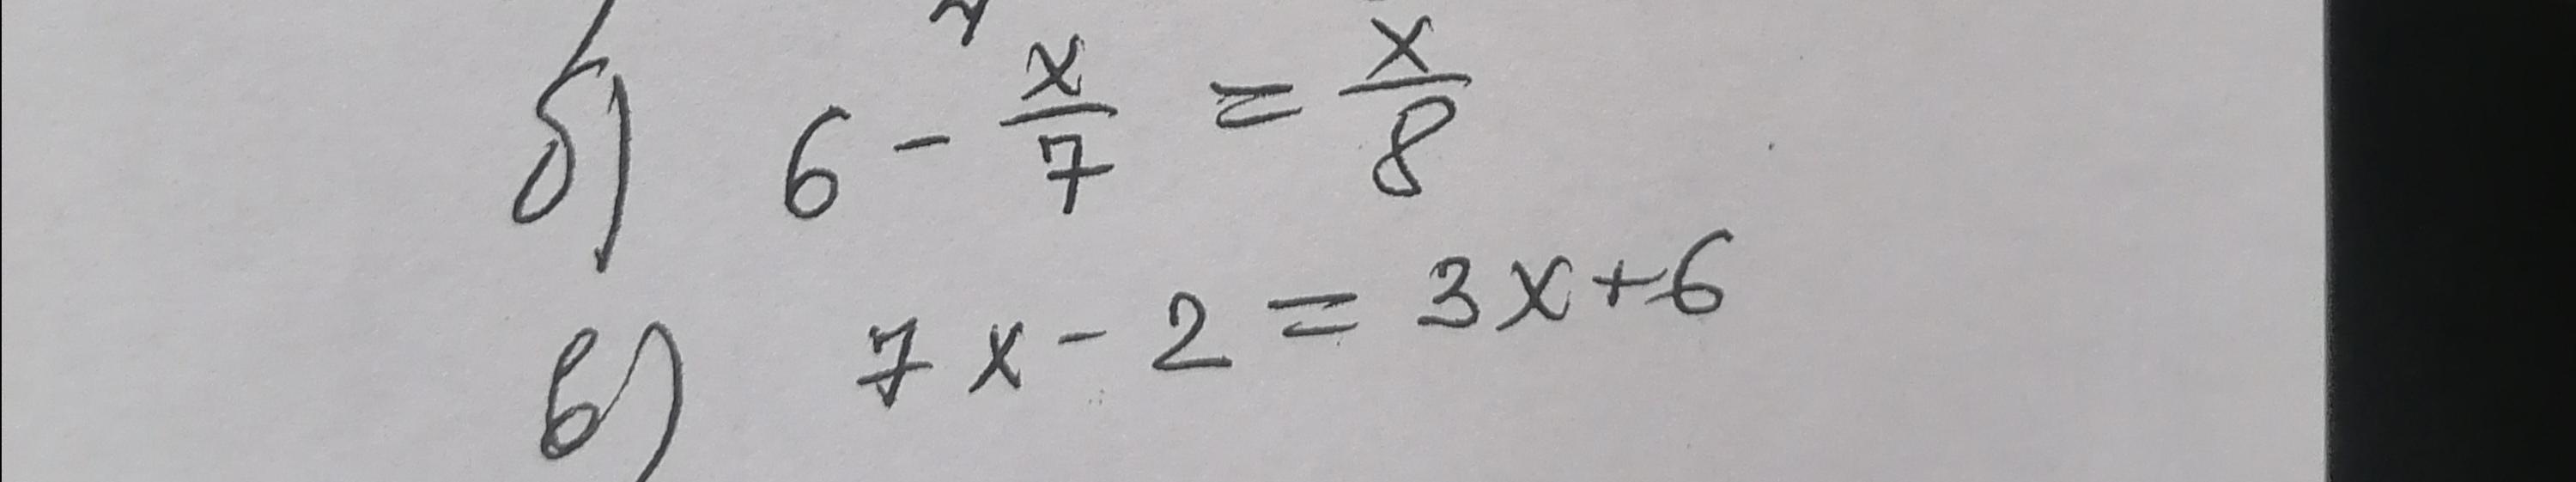 б) 6 - x/7 = x/8
в) 7x - 2 = 3x + 6